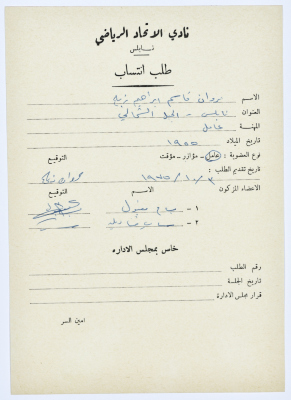 نادي الاتحاد الرياضي
نابلس
طلب انتساب
الاسم مروان قاسم ابراهيم
العنوان نابلس - الجبل الشمالي
المهنة عامل
تاريخ الميلاد ١٩٥٥
نوع العضوية : عامل - مؤازر - مؤقت
تاريخ تقديم الطلب : ٣ / ١ / ١٩٧٥ التوقيع
الاعضاء المزكون الاسم التوقيع
١ -
٢ -
خاص بمجلس الاداره
رقم الطلب
تاريخ الجلسة
قرار مجلس الادارة
امين السر